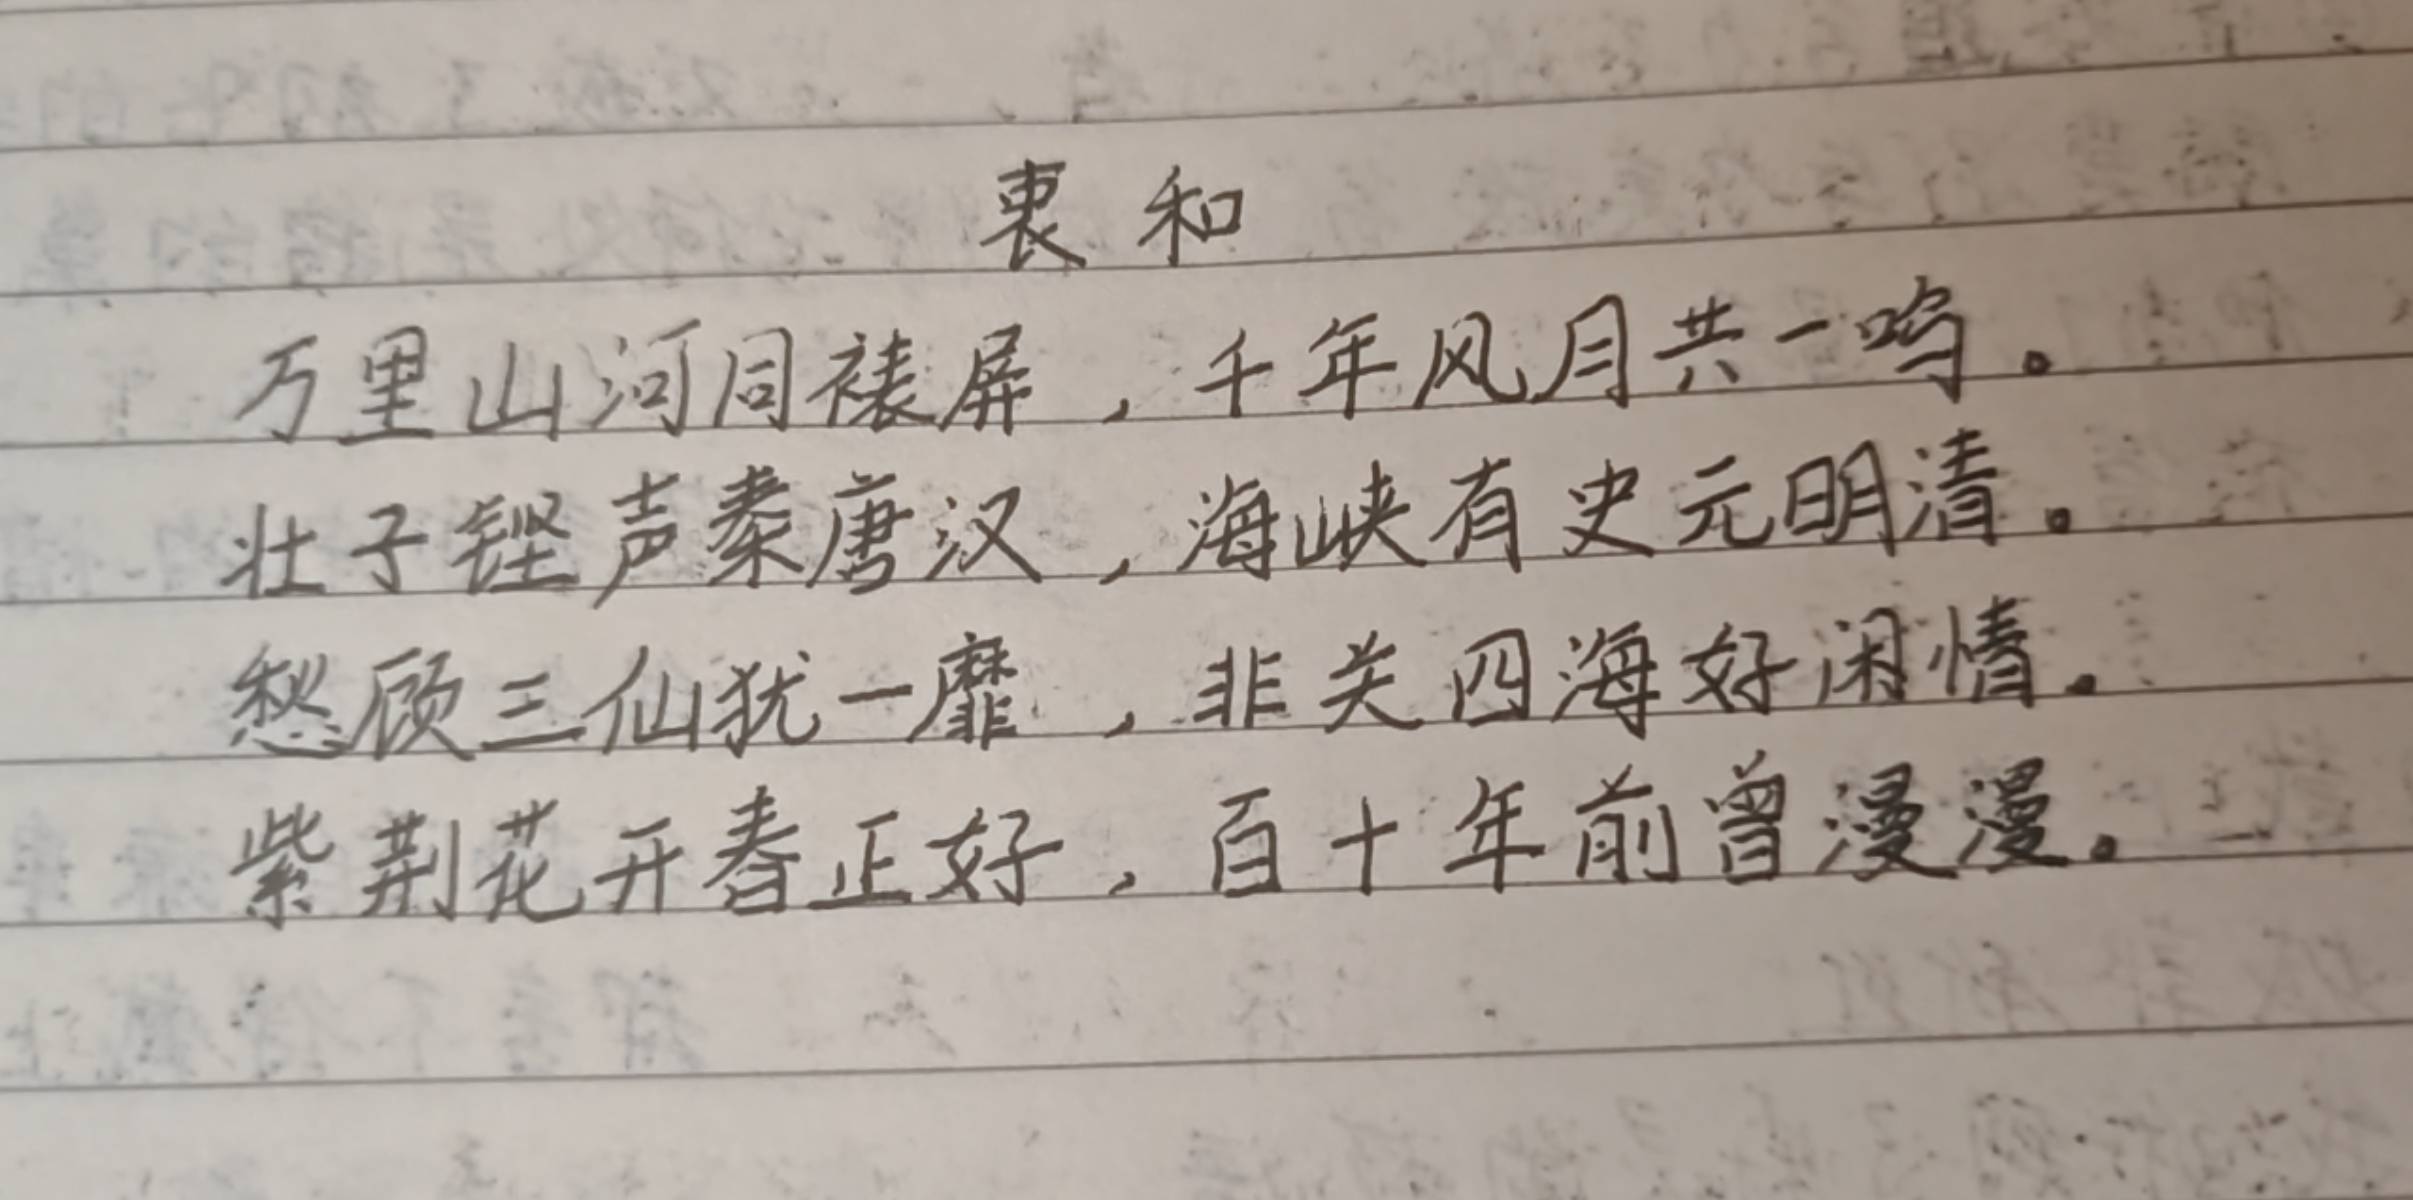 衷和
万里山河同裱屏，千年风月共一鸣。
壮子铿声秦唐汉，海峡有史元明清。
愁顾三仙犹一靡，非关四海好闲情。
紫荆花开春正好，百十年前曾漫漫。